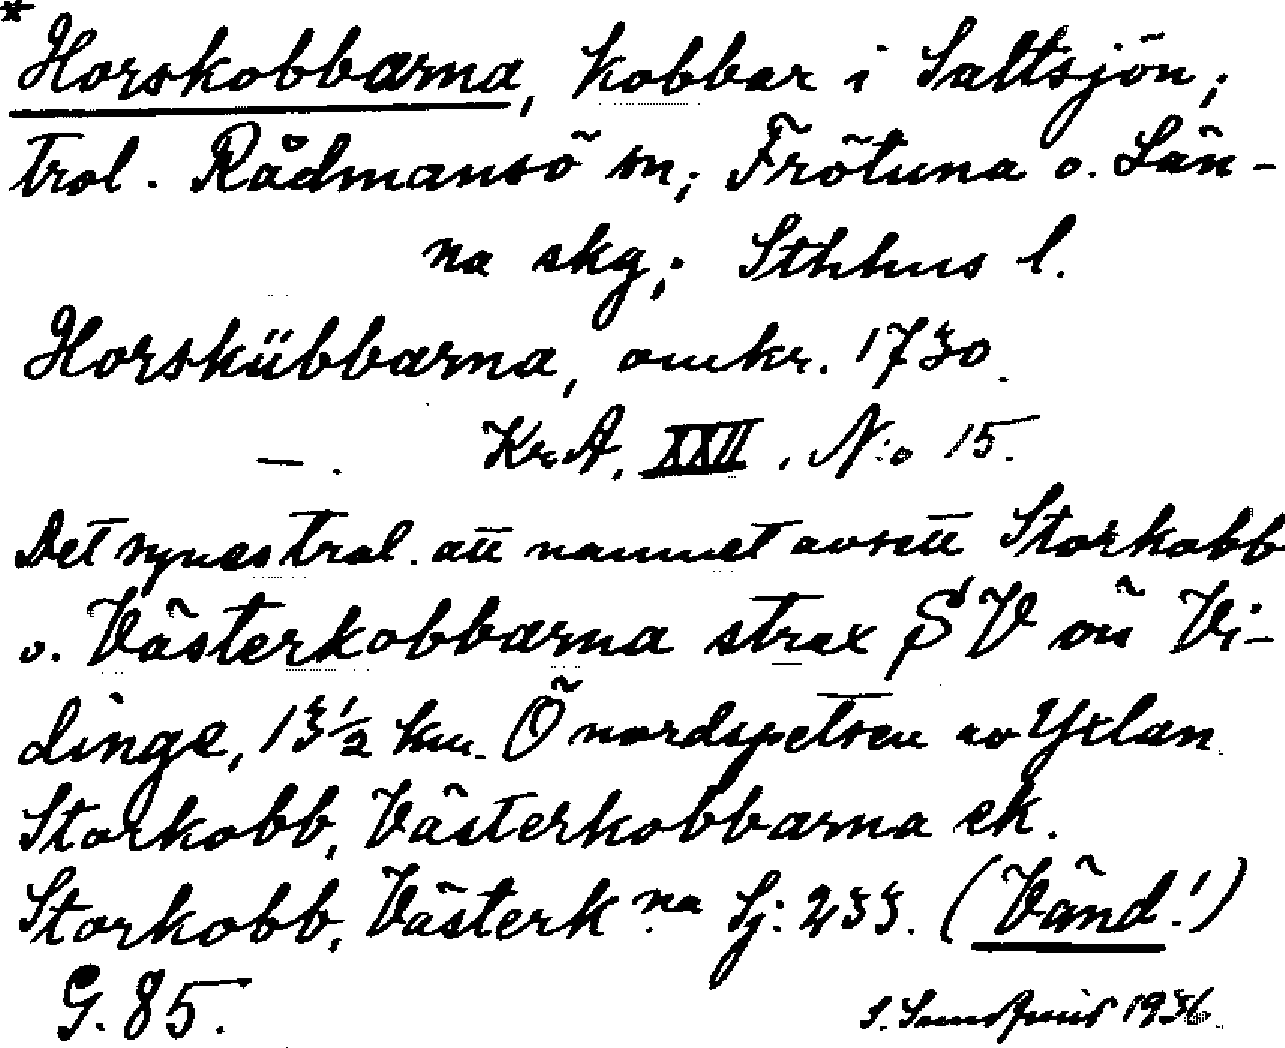 *Horskobbarna, kobbar i Saltsjön;
trol. Rådmansö sn; Frötuna o. Län-
na skg; Sthlms l.
Horskübbarna, omkr. 1730.
—. Kr.A. XXII. N:o 15.
Det synes trol. att namnet avsett Storkobb
o. Västerkobbarna strax SV om Vi-
dinge, 13½ km. Ö nordspetsen av Yxlan
Storkobb, Västerkobbarna ek.
Storkobb, Västerk.na Sj: 233. (Vänd!)
G. 85.
1936